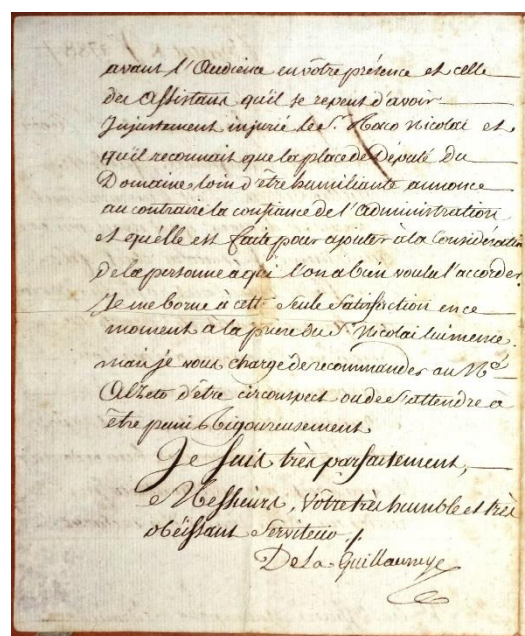 avant l'Audience en vôtre présence et celle
des Assistans qu'il se repent d'avoir
Injustement injurié le S.r Maco Nicolai et
qu'il reconnait que la place de Député du
Domaine, loin d'être humiliante annonce
au contraire la confiance de l'administration
et qu'elle est faite pour ajouter à la Considération
de la personne à qui l'on a bien voulu l'accorder.
Je me borne à cette seule Satisfaction en ce
moment à la priere du S.r Nicolai lui meme.
mais je vous charge de recommander au N.é
Alzeto d'être circonspect ou de s'attendre à
être puni Rigoureusement.
Je suis très parfaitement,
Messieurs, Vôtre très humble et très
obéissant Serviteur /.
De la Guillaumye